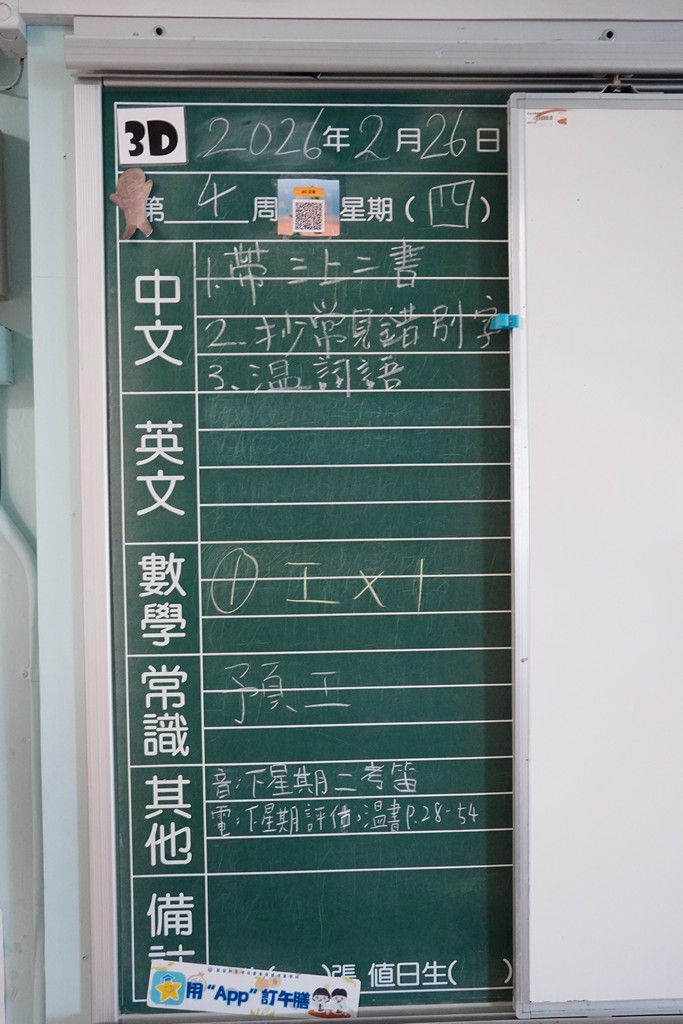 3D 2026年2月26日
第4周 星期(四)
中文
1.帶三上二書
2.抄常見錯別字
3.温詞語
英文
數學
① 工×1
常識
預工
其他
音:下星期二考笛
電:下星期評估,温書P.28-54
備
( )張 值日生( )
用“App”訂午膳